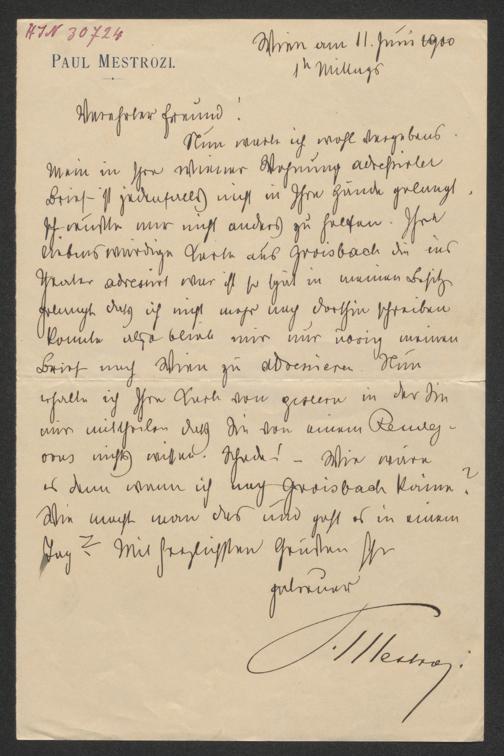 HIN 30724
PAUL MESTROZI.
Wien am 11. Juni 1900
1h Mittags
Verehrter Freund!
Nun warte ich wohl vergebens.
Mein in Ihre Wiener Wohnung adressirter
Brief ist jedenfalls nicht in Ihre Hände gelangt.
Ich wußte mir nicht anders zu helfen. Ihre
liebenswürdige Karte aus Groisbach die ins
Theater adressirt war ist so spät in meinen Besitz
gelangt daß ich nicht mehr nach dorthin schreiben
konnte also blieb mir nur übrig meinen
Brief nach Wien zu adressieren. Nun
erhalte ich Ihre Karte von gestern in der Sie
mir mittheilen daß Sie von einem Rendez-
vous nichts wissen. Schade! – Wie wäre
es denn wenn ich nach Groisbach käme?
Wie macht man das und geht es in einem
Tag? Mit herzlichsten Grüßen Ihr
getreuer
P. Mestrozi